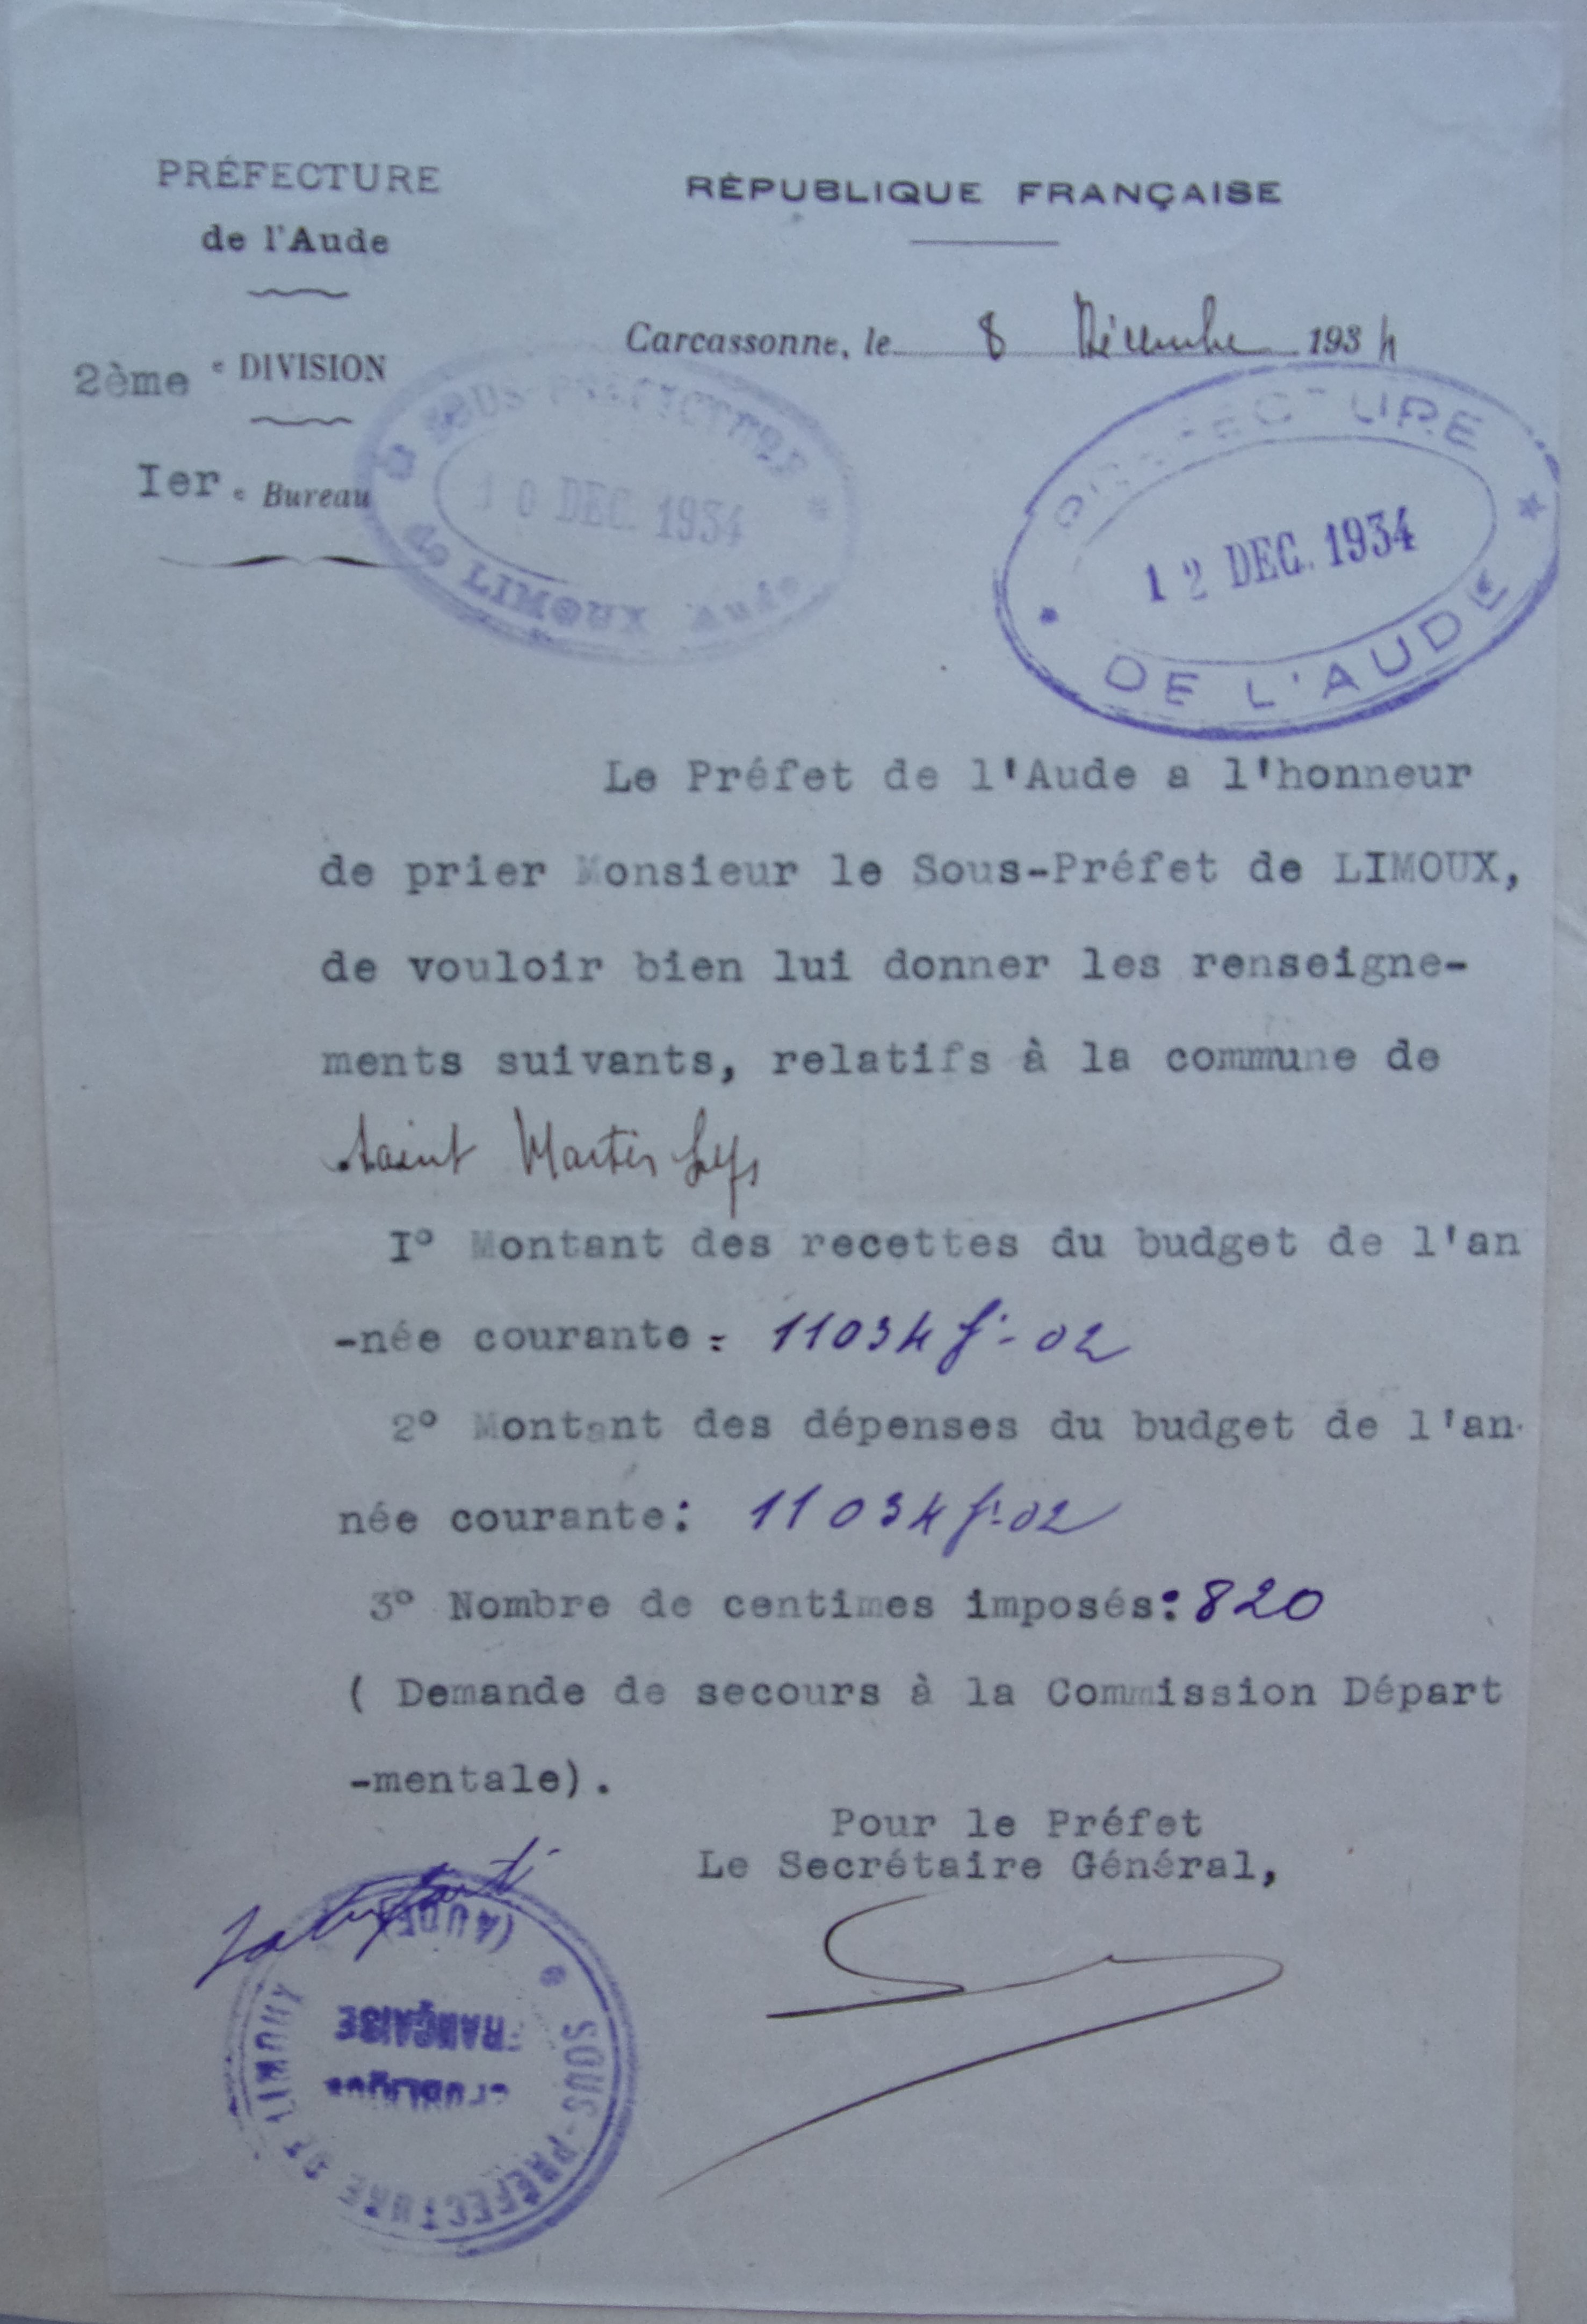 PRÉFECTURE
de l'Aude
RÉPUBLIQUE FRANÇAISE
Carcassonne, le 8 Décembre 1934
2ème e DIVISION
Ier. e Bureau
SOUS-PREFECTURE
10 DEC. 1934
de LIMOUX Aude
PREFECTURE
12 DEC. 1934
DE L'AUDE
Le Préfet de l'Aude a l'honneur
de prier Monsieur le Sous-Préfet de LIMOUX,
de vouloir bien lui donner les renseigne-
ments suivants, relatifs à la commune de
Saint Martin Lys
I° Montant des recettes du budget de l'an
-née courante: 11034 f.-02
2° Montant des dépenses du budget de l'an-
née courante: 11034 f.-02
3° Nombre de centimes imposés: 820
( Demande de secours à la Commission Départ
-mentale).
Pour le Préfet
Le Secrétaire Général,
SOUS-PRÉFECTURE DE LIMOUX
(AUDE)
RÉPUBLIQUE
FRANÇAISE